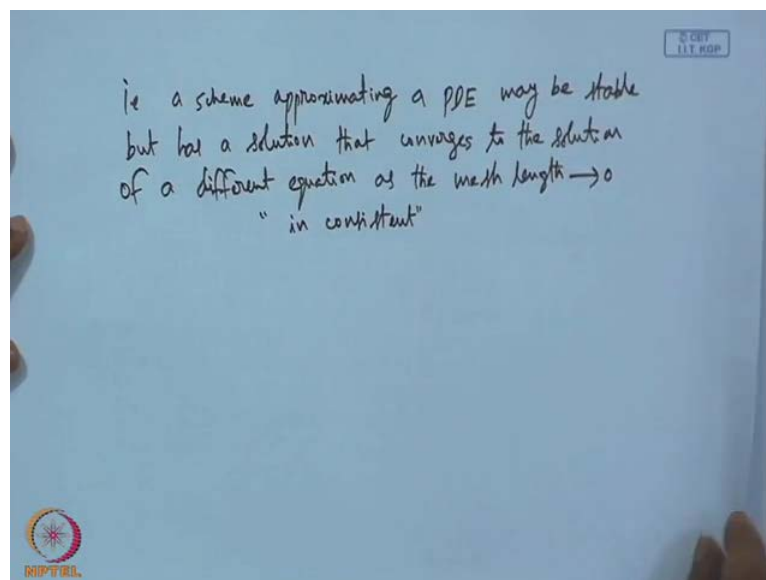 © CET
I.I.T. KGP
ie a scheme approximating a PDE may be stable
but has a solution that converges to the solution
of a different equation as the mesh length → 0
"in consistent"
NPTEL